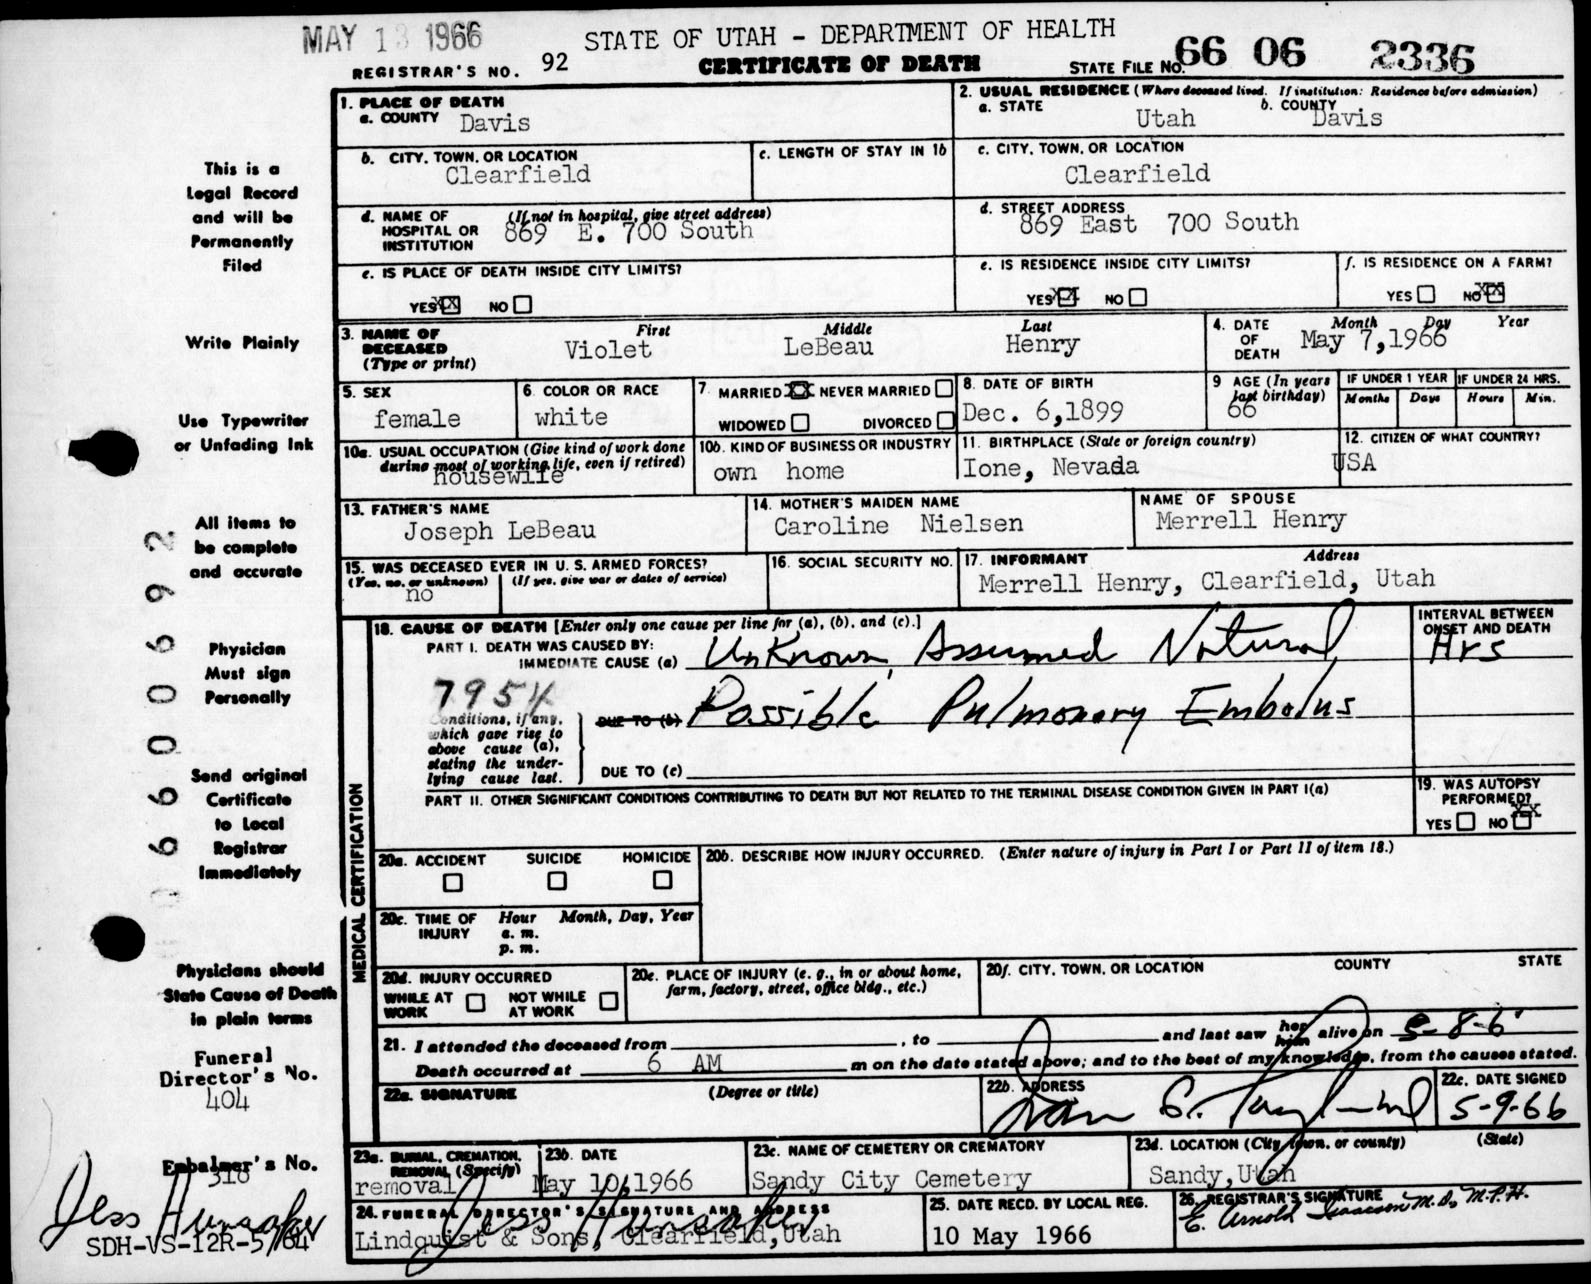 MAY 13 1966
STATE OF UTAH - DEPARTMENT OF HEALTH
REGISTRAR'S NO. 92
CERTIFICATE OF DEATH
STATE FILE NO. 66 06 2336
1. PLACE OF DEATH
a. COUNTY Davis
2. USUAL RESIDENCE (Where deceased lived. If institution: Residence before admission)
a. STATE Utah b. COUNTY Davis
b. CITY, TOWN, OR LOCATION Clearfield
c. LENGTH OF STAY IN 1b
c. CITY, TOWN, OR LOCATION Clearfield
d. NAME OF HOSPITAL OR INSTITUTION (If not in hospital, give street address) 869 E. 700 South
d. STREET ADDRESS 869 East 700 South
e. IS PLACE OF DEATH INSIDE CITY LIMITS?
YES XX NO
e. IS RESIDENCE INSIDE CITY LIMITS?
YES XX NO
f. IS RESIDENCE ON A FARM?
YES NO XX
3. NAME OF DECEASED (Type or print)
First Middle Last
Violet LeBeau Henry
4. DATE OF DEATH Month Day Year
May 7,1966
5. SEX female
6. COLOR OR RACE white
7. MARRIED XX NEVER MARRIED
WIDOWED DIVORCED
8. DATE OF BIRTH Dec. 6,1899
9 AGE (In years last birthday) 66
IF UNDER 1 YEAR Months Days
IF UNDER 24 HRS. Hours Min.
10a. USUAL OCCUPATION (Give kind of work done during most of working life, even if retired)
housewife
10b. KIND OF BUSINESS OR INDUSTRY
own home
11. BIRTHPLACE (State or foreign country)
Ione, Nevada
12. CITIZEN OF WHAT COUNTRY?
USA
13. FATHER'S NAME
Joseph LeBeau
14. MOTHER'S MAIDEN NAME
Caroline Nielsen
NAME OF SPOUSE
Merrell Henry
15. WAS DECEASED EVER IN U. S. ARMED FORCES?
(Yes, no, or unknown) (If yes, give war or dates of service)
no
16. SOCIAL SECURITY NO.
17. INFORMANT Address
Merrell Henry, Clearfield, Utah
MEDICAL CERTIFICATION
18. CAUSE OF DEATH [Enter only one cause per line for (a), (b), and (c).]
INTERVAL BETWEEN ONSET AND DEATH
PART I. DEATH WAS CAUSED BY:
IMMEDIATE CAUSE (a) Unknown, Assumed Natural
Hrs
7954
Conditions, if any, which gave rise to above cause (a), stating the underlying cause last.
DUE TO (b) Possible Pulmonary Embolus
DUE TO (c)
PART II. OTHER SIGNIFICANT CONDITIONS CONTRIBUTING TO DEATH BUT NOT RELATED TO THE TERMINAL DISEASE CONDITION GIVEN IN PART I(a)
19. WAS AUTOPSY PERFORMED?
YES NO XX
20a. ACCIDENT SUICIDE HOMICIDE
20b. DESCRIBE HOW INJURY OCCURRED. (Enter nature of injury in Part I or Part II of item 18.)
20c. TIME OF INJURY Hour Month, Day, Year
a. m.
p. m.
20d. INJURY OCCURRED
WHILE AT WORK NOT WHILE AT WORK
20e. PLACE OF INJURY (e. g., in or about home, farm, factory, street, office bldg., etc.)
20f. CITY, TOWN, OR LOCATION COUNTY STATE
21. I attended the deceased from , to and last saw her him alive on 5-8-6
Death occurred at 6 AM m on the date stated above; and to the best of my knowledge, from the causes stated.
22a. SIGNATURE (Degree or title)
22b. ADDRESS
22c. DATE SIGNED
5-9-66
23a. BURIAL, CREMATION, REMOVAL (Specify)
removal
23b. DATE
May 10,1966
23c. NAME OF CEMETERY OR CREMATORY
Sandy City Cemetery
23d. LOCATION (City, town, or county) (State)
Sandy,Utah
24. FUNERAL DIRECTOR'S SIGNATURE AND ADDRESS
Jess Hunsaker
Lindquist & Sons, Clearfield,Utah
25. DATE RECD. BY LOCAL REG.
10 May 1966
26. REGISTRAR'S SIGNATURE
E. Arnold Isaacson M.D., M.P.H.
This is a
Legal Record
and will be
Permanently
Filed
Write Plainly
Use Typewriter
or Unfading Ink
All items to
be complete
and accurate
Physician
Must sign
Personally
Send original
Certificate
to Local
Registrar
Immediately
Physicians should
State Cause of Death
in plain terms
Funeral
Director's No.
404
Embalmer's No.
318
Jess Hunsaker
SDH-VS-12R-5/64